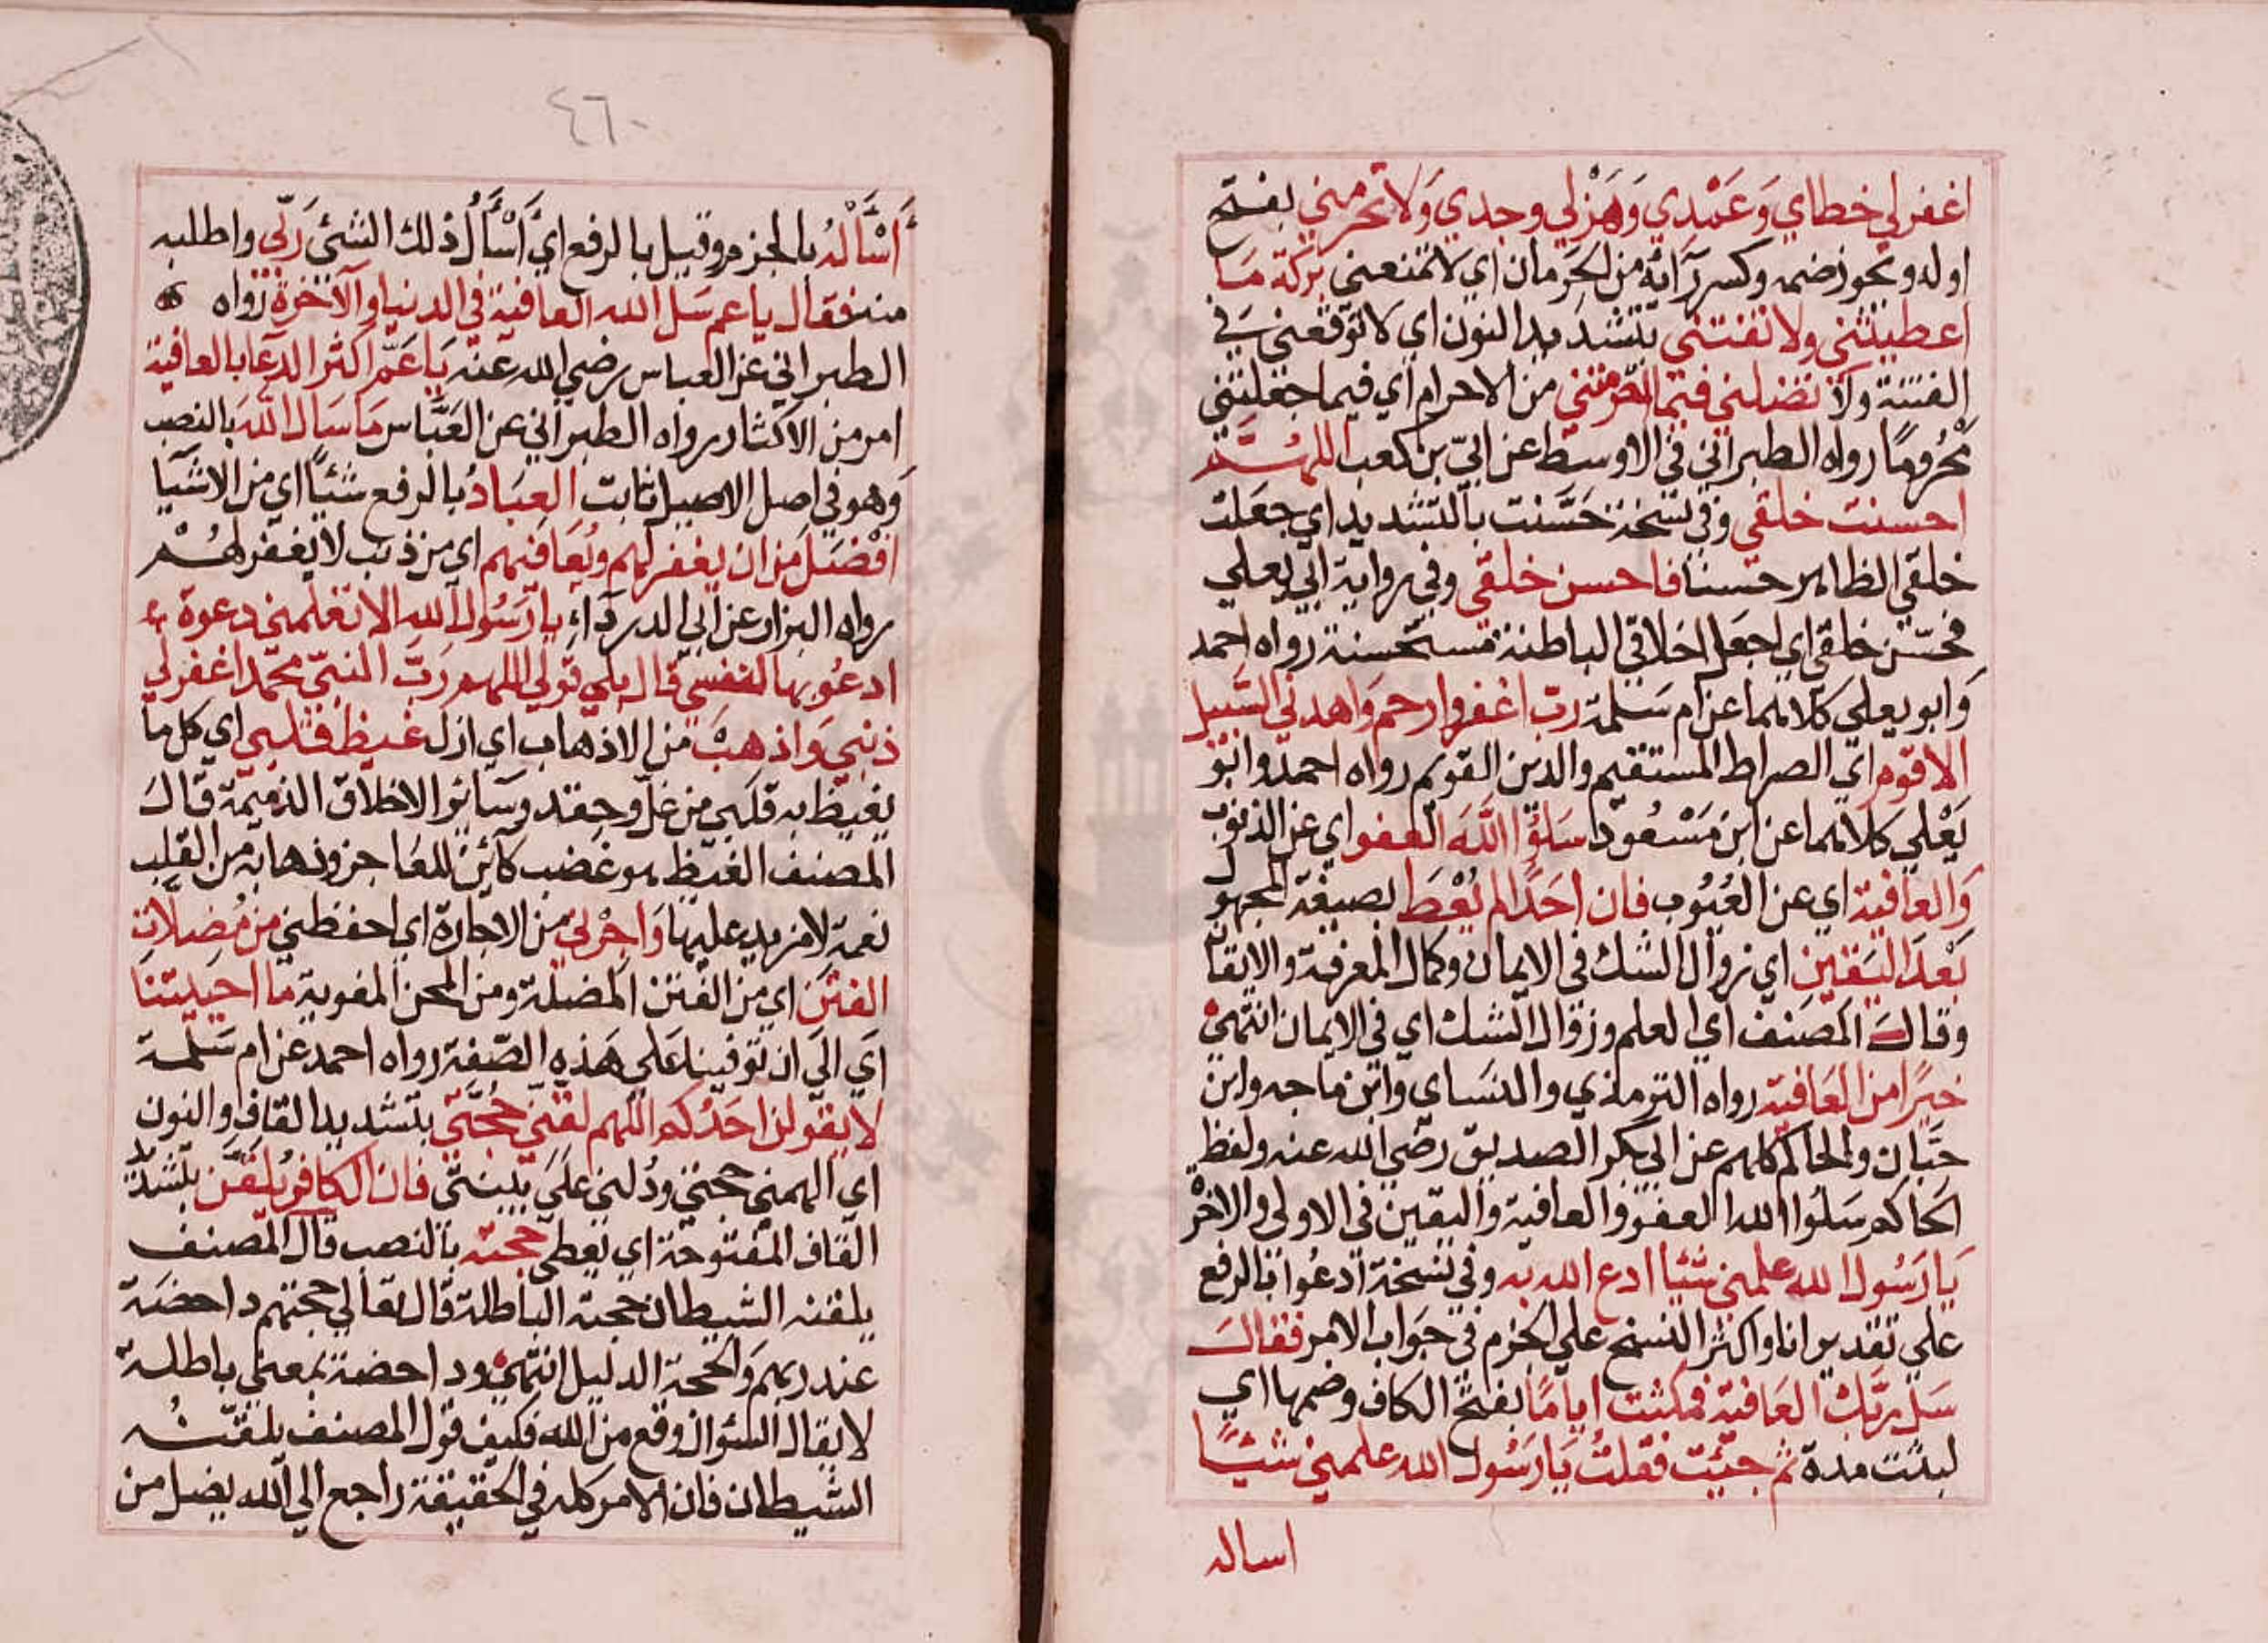 اغفر لي خطاي وَعَمْدي وَهَزْلي وجدي وَلا تحرمني بفتح
اوله ويجوز ضمه وكسر رآئه من الحَرمان اي لا تمنعني بركة مَا
اعطيتني ولا تفتني بتشديد النون اي لا توقعني في
الفتنة ولا تضلني فيما احرمتني من الاحرام اي فيما جعلتني
مَحْرُومًا رواه الطبراني في الاوسط عن ابيّ بن كعب اللهُمَّ
احسنت خلقي وفي نسخة حَسَّنت بالتشديد اي جعلت
خلقي الظاهر حسنًا فاحسن خلقي وفي رواية ابي يعلي
فحسّن خلقي اي اجعل اخلاقي الباطنة مستحسنة رواه احمد
وَابو يعلي كلاهما عن ام سَلمة رب اغفر وارحم وَاهدني السَّبيل
الاقوم اي الصراط المستقيم والدين القويم رواه احمد وابو
يَعْلي كلاهما عن ابن مَسْعُود سَلوُا اللَّهَ العفو اي عن الذنوب
وَالعافية اي عن العُيُوب فان احَدًا لم يُعْطَ بصيغة المجهول
بَعْدَ اليَقين اي زوال الشك في الايمان وكمال المعرفة والايقان
وقالَ المصَنف اي العلم وزوال الشك اي في الايمان انتهي
خيرًا من العَافية رواه الترمذي والنسَاي وابن ماجه وابن
حبّان والحاكم كلهم عن ابي بكر الصديق رضي الله عنه ولفظ
الحاكم سَلوُا الله العفو والعافية واليقين في الاولي والاخرة
يَا رَسُول الله علمني شيئا ادع الله به وفي نسخة ادعُوا بالرفع
علي تقدير انا واكثر النسخ علي الجزم في جَواب الامر فقالَ
سَل ربَّك العَافية فمكثت ايامًا بفتح الكاف وضمها اي
لبثت مدة ثم جئت فقلتُ يَا رَسُول الله علمني شيئًا
اساله
٤٦٠
أَسْأَلْهُ بالجزم وقيل بالرفع اي أَسْأَلُ ذلك الشئ رَبّي واطلبه
منه فقال يا عم سَل الله العافية في الدنيا والآخرة رواه
الطبراني عن العباس رضي الله عنه يَا عَمّ اكثر الدعا بالعافية
امر من الاكثار رواه الطبراني عن العَبَّاس مَا سَال اللهَ بالنصب
وَهو في اصل الاصيل ثابت العِبَادُ بالرفع شئيًا اي من الاشيا
افْضَلَ من ان يغفر لهم ويُعَافيهم اي من ذنب لا يغفر لهُمْ
رواه البزار عن ابي الدردآءِ يا رَسُول الله الا تعلمني دعوة
ادعُو بها لنفسي قال بلي قولي اللهم رَبّ النبيّ محمّد اغفر لي
ذنبي وَاذهبْ من الاذهاب اي ازل غيظ قلبي اي كل ما
يغيظ به قلبي من غلّ وحِقد وسآئر الاخلاق الذميمة قالَ
المصنف الغيظ هو غضب كآئن للعَاجز وذهابه من القلب
نعمة لا مزيد عليها وَاجِرْني من الاجارة اي احفظني من مُضلّات
الفتن اي من الفتن المضلة ومن المحن المغوية ما احييتنَا
اي الي ان توفينا علي هَذه الصّفة رواه احمد عن ام سَلمة
لا يقولن احَدُكم اللهم لقني حُجّتي بتشديد القاف والنون
اي الهمني حجتي ودُلني علي بينتي فان الكافر يُلَقَّن بتشديد
القاف المفتوحة اي يعطي حجته بالنصب قال المصنف
يلقنه الشيطان حجته الباطلة قال تعالي حجتهم داحضَة
عند ربهم وَالحجة الدليل انتهي وداحضة بمعني باطلة
لا يقال السُئوال وقع من الله فكيف قول المصنف يلقنُه
الشيطان فان الامر كله في الحقيقة راجع الي الله يضل من